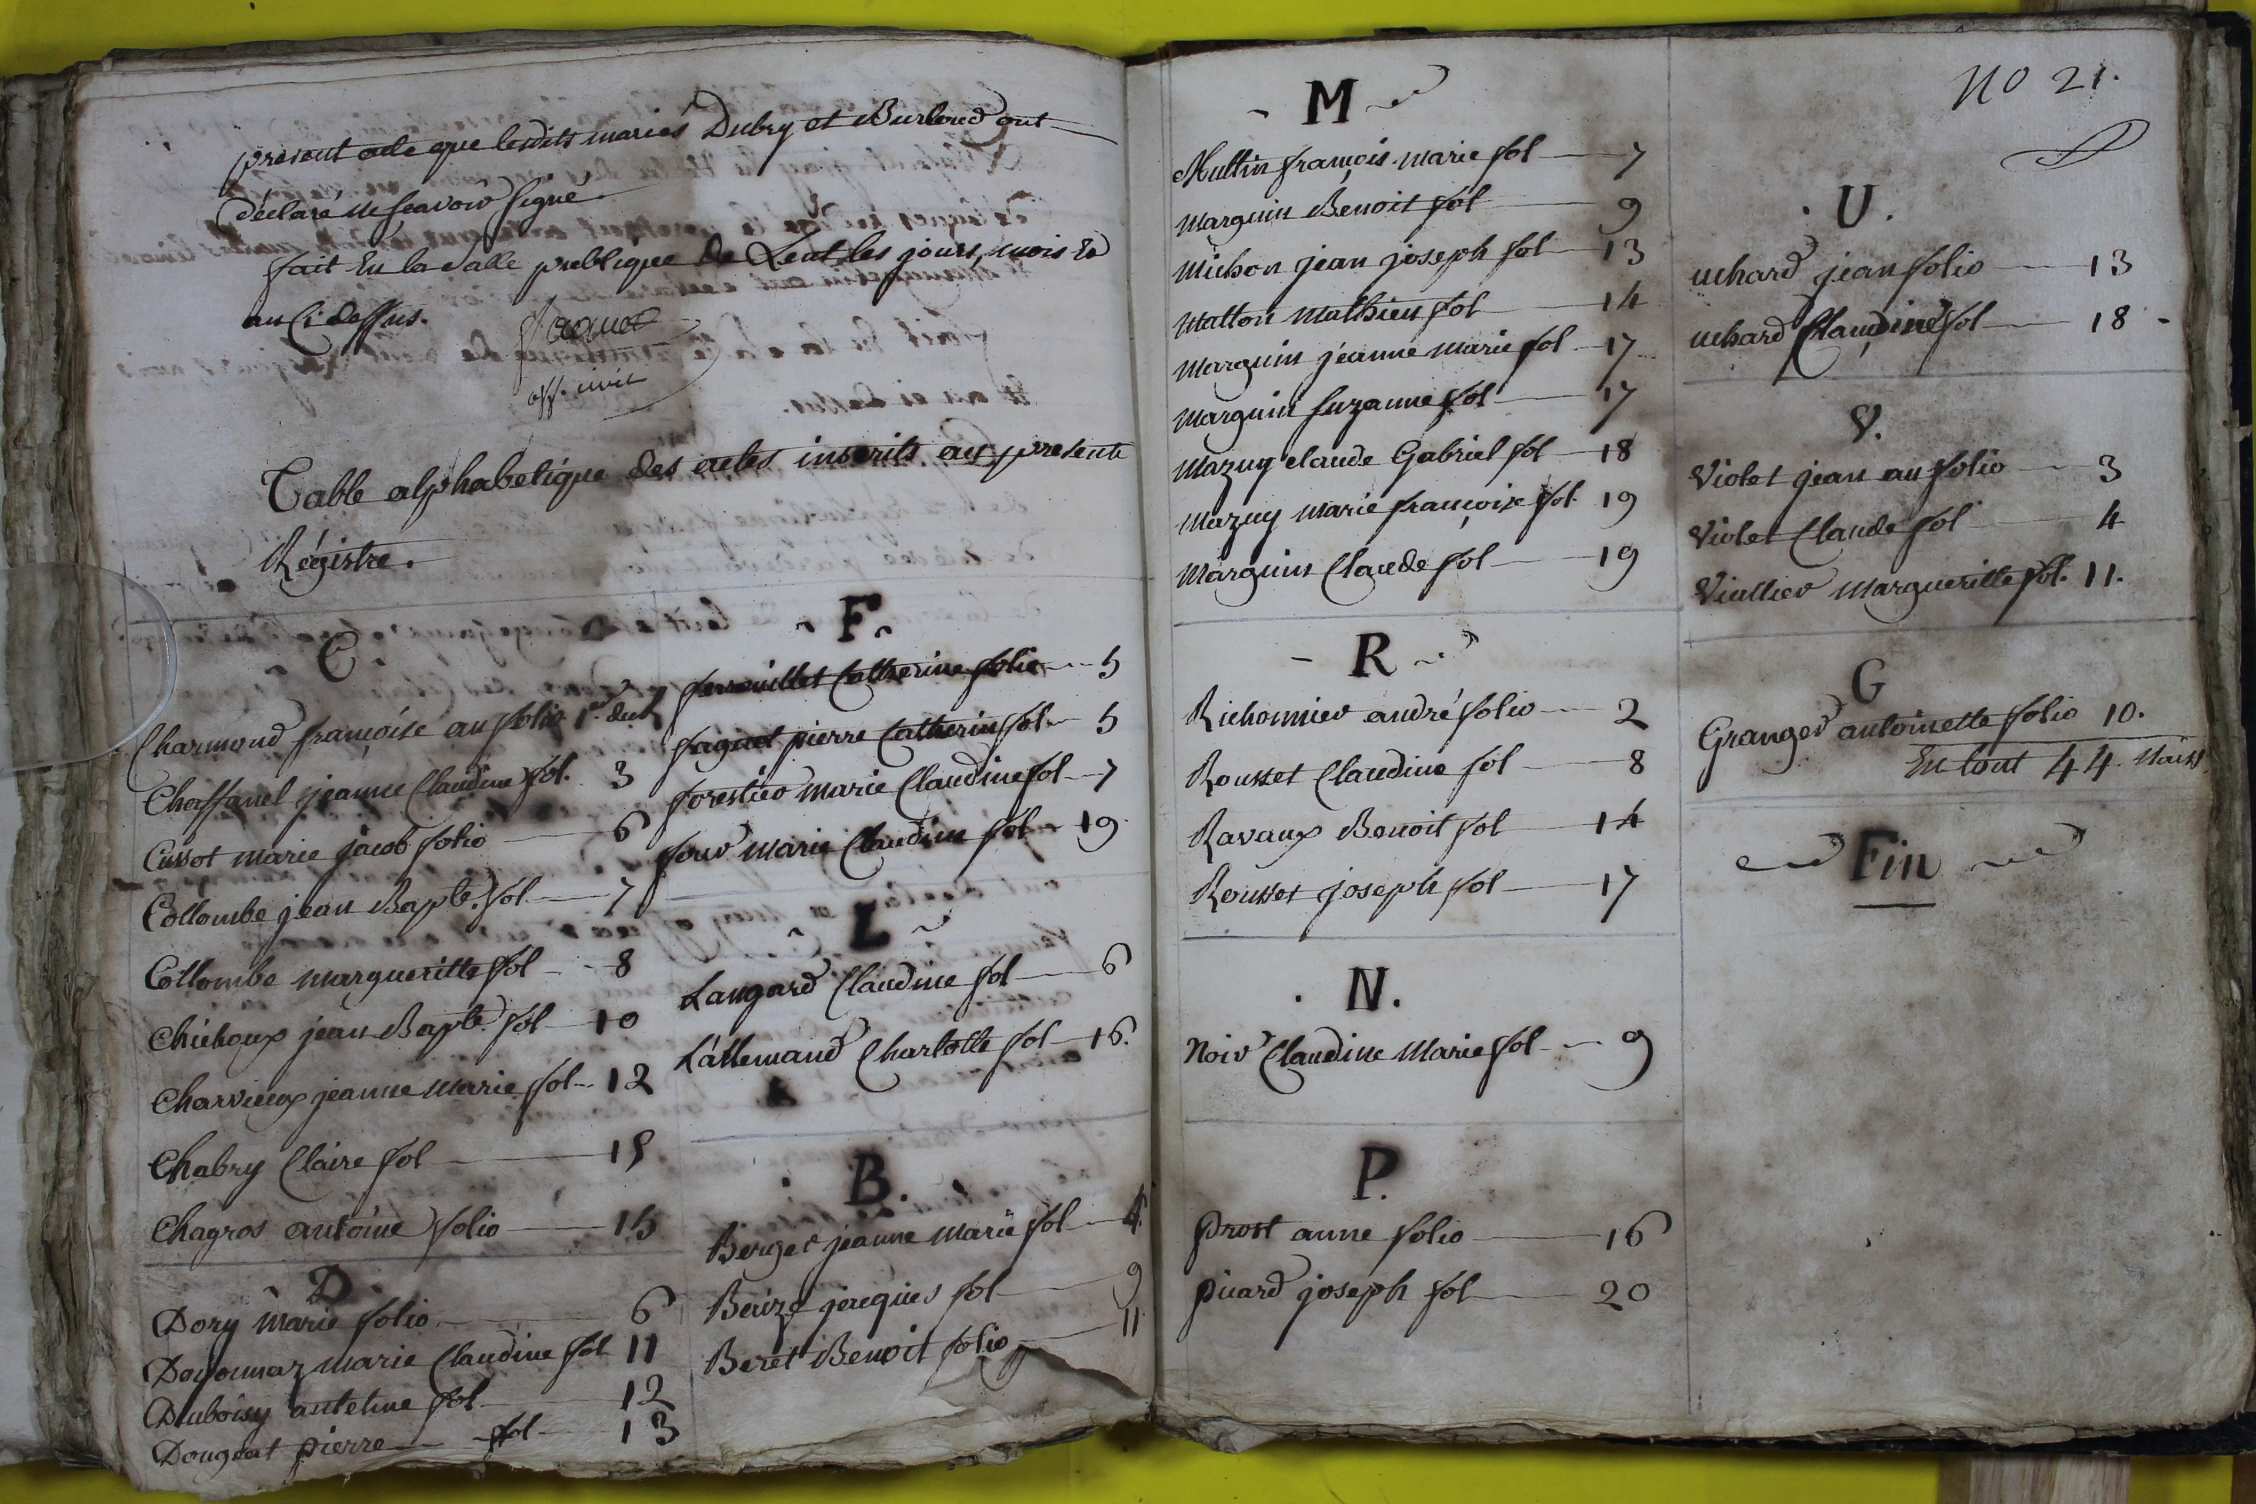 présent acte que lesdits mariés Dubry et Burloud ont
déclaré ne scavoir signé.
fait En la salle publique de Lent les jours, mois et
an Ci dessus.
off. civil
Table alphabetique des actes inscrits au present
Régistre.
C
Charmond françoise au folio 1er du R
Choffanel jeanne Claudine fol. 3
Cussot marie jacob folio 6
Collombe jean Bapte. fol 7
Collombe margueritte fol 8
Chichoux jean Bapte. fol 10
Charvieux jeanne marie fol 12
Chabry Claire fol 15
Chagros antoine folio 15
D
Dory marie folio 6
Doyonnaz marie Claudine fol 11
Duboisy antelme fol 12
Dougeat pierre fol 13
F
ferrouillet Catherine folio 5
faguet pierre Catherin fol 5
forestier marie Claudine fol 7
four marie Claudine fol 19
L
Langard Claudine fol 6
Lallemand Charlotte fol 16.
B.
Berger jeanne marie fol 4
Berize jacques fol 9
Beret Benoit folio 11
M
Multin françois marie fol 7
marguin Benoit fol 9
Michon jean joseph fol 13
Matton mathieu fol 14
marguin jeanne marie fol 17
marguin suzanne fol 17
mazuy claude Gabriel fol 18
mazuy marie françoise fol 19
marguin Claude fol 19
R
Richonnier andré folio 2
Rousset Claudine fol 8
Ravaux Benoit fol 14
Rousset joseph fol 17
N.
Noir Claudine Marie fol 9
P.
Prost anne folio 16
picard joseph fol 20
No 21.
U.
uchard jean folio 13
uchard Claudine fol 18
V.
Violet jean au folio 3
Violet Claude fol 4
Viallier margueritte fol. 11.
G
Granger antoinette folio 10.
En tout 44. Naiss
Fin